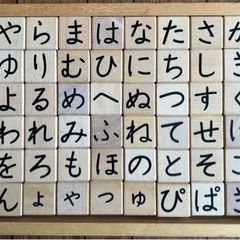 やらまはなたさ
ゆりむひにちし
よるめへぬつす
われみふねてせ
をろもほのとそ
んょゃっゅぴぱ